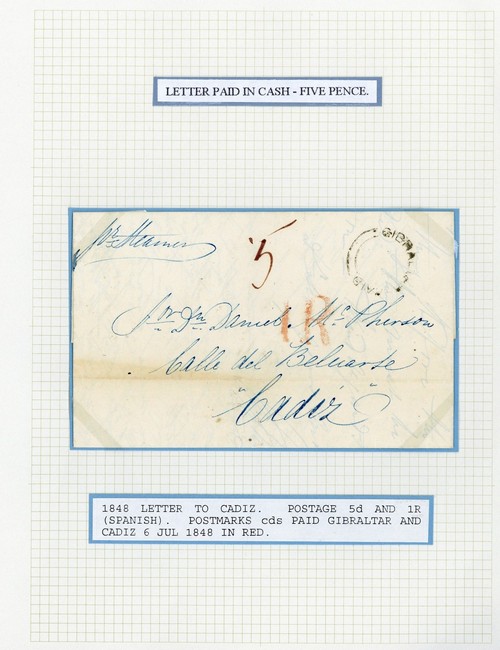 LETTER PAID IN CASH - FIVE PENCE.
pr Steamer
5
GIBRALTAR
PAID
1R
Sor Dn Daniel McPherson
Calle del Beluarte
"Cadiz"
1848 LETTER TO CADIZ. POSTAGE 5d AND 1R
(SPANISH). POSTMARKS cds PAID GIBRALTAR AND
CADIZ 6 JUL 1848 IN RED.